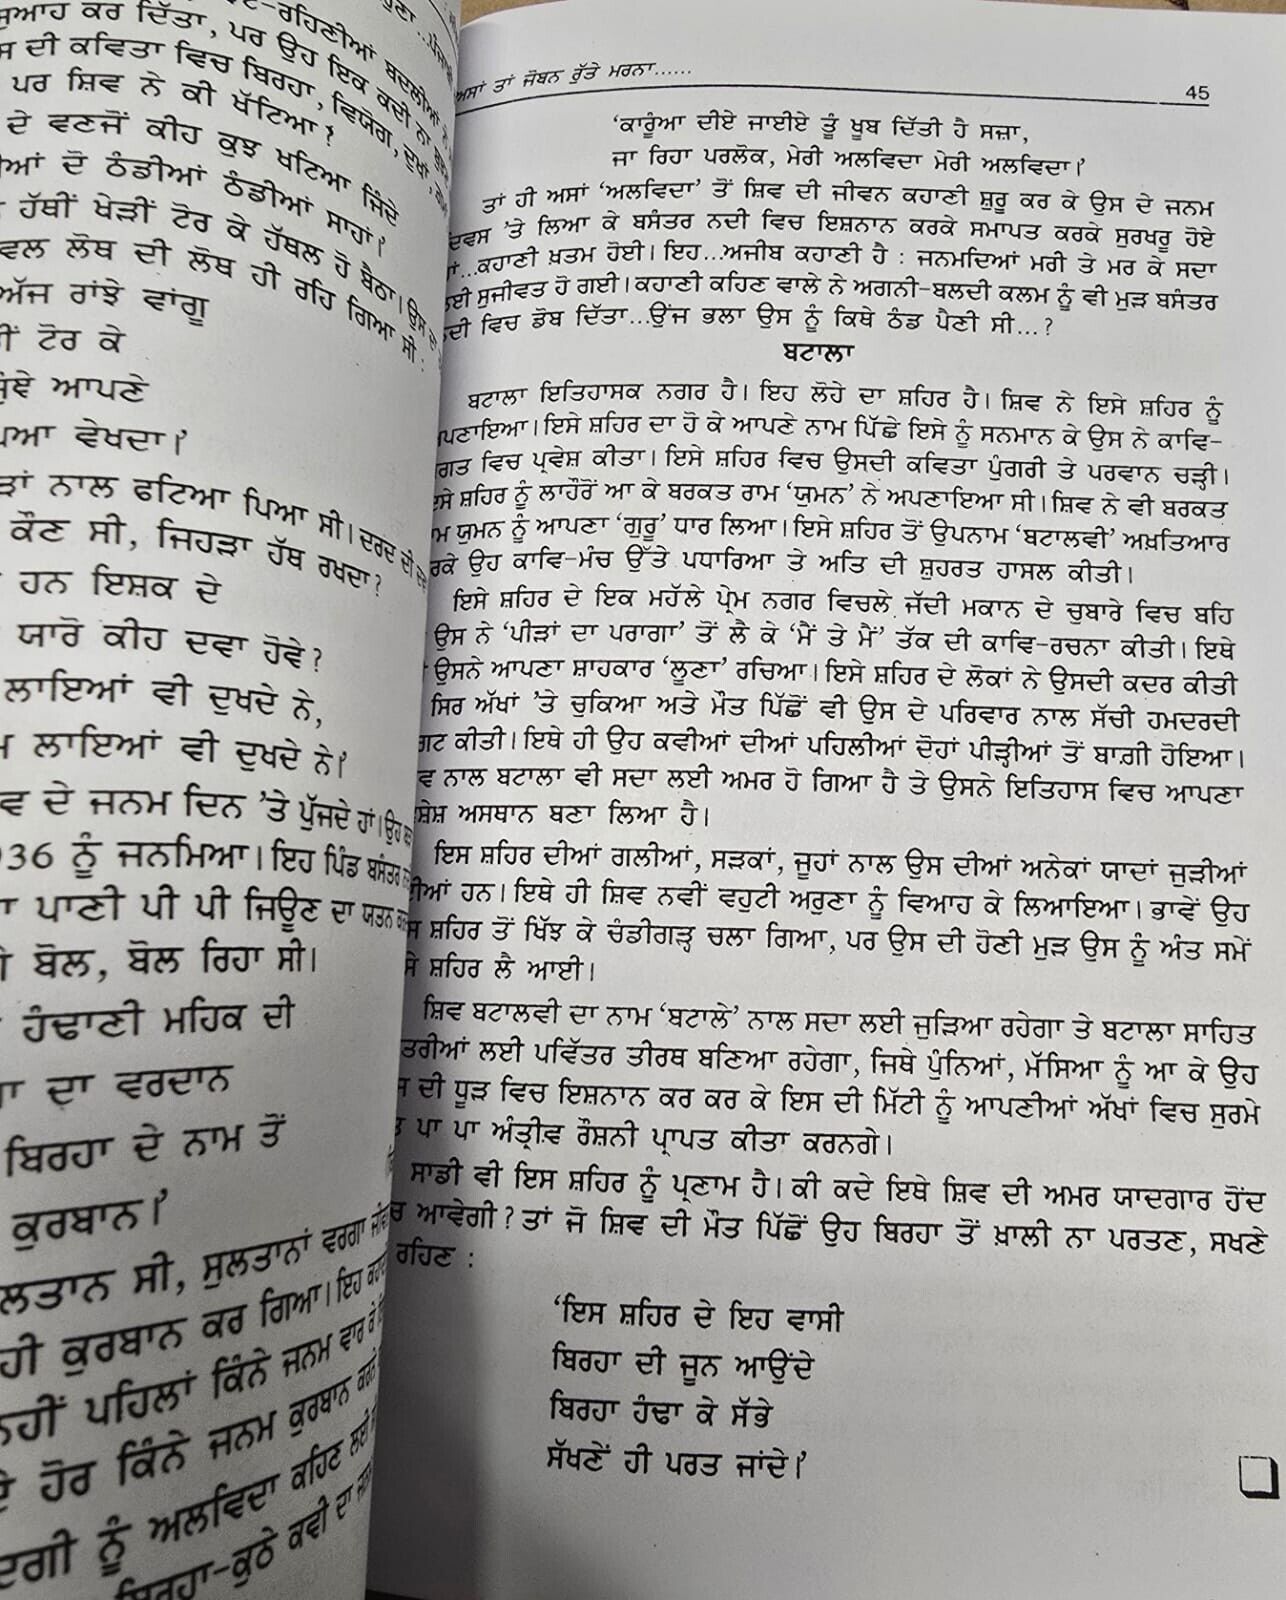 ਸੁਆਹ ਕਰ ਦਿੱਤਾ, ਪਰ ਉਹ ਇਕ ਕਦੀ ਨਾ
ਦੀ ਕਵਿਤਾ ਵਿਚ ਬਿਰਹਾ, ਵਿਯੋਗ, ਦੁਖਾਂ,
ਪਰ ਸ਼ਿਵ ਨੇ ਕੀ ਖੱਟਿਆ?
ਦੇ ਵਣਜੋਂ ਕੀਹ ਕੁਝ ਖਟਿਆ ਜਿੰਦੇ
ਦੋ ਠੰਡੀਆਂ ਠੰਡੀਆਂ ਸਾਹਾਂ।'
ਹੱਥੀਂ ਖੇੜੀਂ ਟੋਰ ਕੇ ਹੱਥਲ ਹੋ ਬੈਠਾ। ਉਸ
ਲੋਥ ਦੀ ਲੋਥ ਹੀ ਰਹਿ ਗਿਆ ਸੀ :
ਅੱਜ ਰਾਂਝੇ ਵਾਂਗੂ
ਟੋਰ ਕੇ
ਆਪਣੇ
ਵੇਖਦਾ।'
ਨਾਲ ਫਟਿਆ ਪਿਆ ਸੀ। ਦਰਦ ਦੀ
ਕੌਣ ਸੀ, ਜਿਹੜਾ ਹੱਥ ਰਖਦਾ?
ਹਨ ਇਸ਼ਕ ਦੇ
ਯਾਰੋ ਕੀਹ ਦਵਾ ਹੋਵੇ?
ਲਾਇਆਂ ਵੀ ਦੁਖਦੇ ਨੇ,
ਲਾਇਆਂ ਵੀ ਦੁਖਦੇ ਨੇ।'
ਦੇ ਜਨਮ ਦਿਨ 'ਤੇ ਪੁੱਜਦੇ ਹਾਂ। ਉਹ
ਨੂੰ ਜਨਮਿਆ। ਇਹ ਪਿੰਡ ਬਸੰਤਰ
ਪਾਣੀ ਪੀ ਪੀ ਜਿਊਣ ਦਾ ਯਤਨ
ਬੋਲ, ਬੋਲ ਰਿਹਾ ਸੀ।
ਹੰਢਾਣੀ ਮਹਿਕ ਦੀ
ਦਾ ਵਰਦਾਨ
ਬਿਰਹਾ ਦੇ ਨਾਮ ਤੋਂ
ਕੁਰਬਾਨ।'
ਸੀ, ਸੁਲਤਾਨਾਂ ਵਰਗਾ
ਹੀ ਕੁਰਬਾਨ ਕਰ ਗਿਆ। ਇਹ
ਪਹਿਲਾਂ ਕਿੰਨੇ ਜਨਮ ਵਾਰ ਕੇ
ਹੋਰ ਕਿੰਨੇ ਜਨਮ ਕੁਰਬਾਨ ਕਰਨੇ
ਨੂੰ ਅਲਵਿਦਾ ਕਹਿਣ ਲਈ
ਬਿਰਹਾ-ਕੁਠੇ ਕਵੀ ਦਾ
ਅਸਾਂ ਤਾਂ ਜੋਬਨ ਰੁੱਤੇ ਮਰਨਾ...... 45
'ਕਾਰੂੰਆ ਦੀਏ ਜਾਈਏ ਤੂੰ ਖ਼ੂਬ ਦਿੱਤੀ ਹੈ ਸਜ਼ਾ,
ਜਾ ਰਿਹਾ ਪਰਲੋਕ, ਮੇਰੀ ਅਲਵਿਦਾ ਮੇਰੀ ਅਲਵਿਦਾ।'
ਤਾਂ ਹੀ ਅਸਾਂ 'ਅਲਵਿਦਾ' ਤੋਂ ਸ਼ਿਵ ਦੀ ਜੀਵਨ ਕਹਾਣੀ ਸ਼ੁਰੂ ਕਰ ਕੇ ਉਸ ਦੇ ਜਨਮ
ਦਿਵਸ 'ਤੇ ਲਿਆ ਕੇ ਬਸੰਤਰ ਨਦੀ ਵਿਚ ਇਸ਼ਨਾਨ ਕਰਕੇ ਸਮਾਪਤ ਕਰਕੇ ਸੁਰਖਰੂ ਹੋਏ
...ਕਹਾਣੀ ਖ਼ਤਮ ਹੋਈ। ਇਹ...ਅਜੀਬ ਕਹਾਣੀ ਹੈ : ਜਨਮਦਿਆਂ ਮਰੀ ਤੇ ਮਰ ਕੇ ਸਦਾ
ਸੁਜੀਵਤ ਹੋ ਗਈ। ਕਹਾਣੀ ਕਹਿਣ ਵਾਲੇ ਨੇ ਅਗਨੀ-ਬਲਦੀ ਕਲਮ ਨੂੰ ਵੀ ਮੁੜ ਬਸੰਤਰ
ਵਿਚ ਡੋਬ ਦਿੱਤਾ...ਉਂਜ ਭਲਾ ਉਸ ਨੂੰ ਕਿਥੇ ਠੰਡ ਪੈਣੀ ਸੀ...?
ਬਟਾਲਾ
ਬਟਾਲਾ ਇਤਿਹਾਸਕ ਨਗਰ ਹੈ। ਇਹ ਲੋਹੇ ਦਾ ਸ਼ਹਿਰ ਹੈ। ਸ਼ਿਵ ਨੇ ਇਸੇ ਸ਼ਹਿਰ ਨੂੰ
ਇਸੇ ਸ਼ਹਿਰ ਦਾ ਹੋ ਕੇ ਆਪਣੇ ਨਾਮ ਪਿੱਛੇ ਇਸੇ ਨੂੰ ਸਨਮਾਨ ਕੇ ਉਸ ਨੇ ਕਾਵਿ-
ਵਿਚ ਪ੍ਰਵੇਸ਼ ਕੀਤਾ। ਇਸੇ ਸ਼ਹਿਰ ਵਿਚ ਉਸਦੀ ਕਵਿਤਾ ਪੁੰਗਰੀ ਤੇ ਪਰਵਾਨ ਚੜ੍ਹੀ।
ਸ਼ਹਿਰ ਨੂੰ ਲਾਹੌਰੋਂ ਆ ਕੇ ਬਰਕਤ ਰਾਮ 'ਯੁਮਨ' ਨੇ ਅਪਣਾਇਆ ਸੀ। ਸ਼ਿਵ ਨੇ ਵੀ ਬਰਕਤ
ਯੁਮਨ ਨੂੰ ਆਪਣਾ 'ਗੁਰੂ' ਧਾਰ ਲਿਆ। ਇਸੇ ਸ਼ਹਿਰ ਤੋਂ ਉਪਨਾਮ 'ਬਟਾਲਵੀ' ਅਖ਼ਤਿਆਰ
ਉਹ ਕਾਵਿ-ਮੰਚ ਉੱਤੇ ਪਧਾਰਿਆ ਤੇ ਅਤਿ ਦੀ ਸ਼ੁਹਰਤ ਹਾਸਲ ਕੀਤੀ।
ਇਸੇ ਸ਼ਹਿਰ ਦੇ ਇਕ ਮਹੱਲੇ ਪ੍ਰੇਮ ਨਗਰ ਵਿਚਲੇ ਜੱਦੀ ਮਕਾਨ ਦੇ ਚੁਬਾਰੇ ਵਿਚ ਬਹਿ
ਉਸ ਨੇ 'ਪੀੜਾਂ ਦਾ ਪਰਾਗਾ' ਤੋਂ ਲੈ ਕੇ 'ਮੈਂ ਤੇ ਮੈਂ' ਤੱਕ ਦੀ ਕਾਵਿ-ਰਚਨਾ ਕੀਤੀ। ਇਥੇ
ਉਸਨੇ ਆਪਣਾ ਸ਼ਾਹਕਾਰ 'ਲੂਣਾ' ਰਚਿਆ। ਇਸੇ ਸ਼ਹਿਰ ਦੇ ਲੋਕਾਂ ਨੇ ਉਸਦੀ ਕਦਰ ਕੀਤੀ
ਸਿਰ ਅੱਖਾਂ 'ਤੇ ਚੁਕਿਆ ਅਤੇ ਮੌਤ ਪਿੱਛੋਂ ਵੀ ਉਸ ਦੇ ਪਰਿਵਾਰ ਨਾਲ ਸੱਚੀ ਹਮਦਰਦੀ
ਕੀਤੀ। ਇਥੇ ਹੀ ਉਹ ਕਵੀਆਂ ਦੀਆਂ ਪਹਿਲੀਆਂ ਦੋਹਾਂ ਪੀੜ੍ਹੀਆਂ ਤੋਂ ਬਾਗ਼ੀ ਹੋਇਆ।
ਨਾਲ ਬਟਾਲਾ ਵੀ ਸਦਾ ਲਈ ਅਮਰ ਹੋ ਗਿਆ ਹੈ ਤੇ ਉਸਨੇ ਇਤਿਹਾਸ ਵਿਚ ਆਪਣਾ
ਅਸਥਾਨ ਬਣਾ ਲਿਆ ਹੈ।
ਇਸ ਸ਼ਹਿਰ ਦੀਆਂ ਗਲੀਆਂ, ਸੜਕਾਂ, ਜੂਹਾਂ ਨਾਲ ਉਸ ਦੀਆਂ ਅਨੇਕਾਂ ਯਾਦਾਂ ਜੁੜੀਆਂ
ਹਨ। ਇਥੇ ਹੀ ਸ਼ਿਵ ਨਵੀਂ ਵਹੁਟੀ ਅਰੁਣਾ ਨੂੰ ਵਿਆਹ ਕੇ ਲਿਆਇਆ। ਭਾਵੇਂ ਉਹ
ਸ਼ਹਿਰ ਤੋਂ ਖਿੱਝ ਕੇ ਚੰਡੀਗੜ੍ਹ ਚਲਾ ਗਿਆ, ਪਰ ਉਸ ਦੀ ਹੋਣੀ ਮੁੜ ਉਸ ਨੂੰ ਅੰਤ ਸਮੇਂ
ਸ਼ਹਿਰ ਲੈ ਆਈ।
ਸ਼ਿਵ ਬਟਾਲਵੀ ਦਾ ਨਾਮ 'ਬਟਾਲੇ' ਨਾਲ ਸਦਾ ਲਈ ਜੁੜਿਆ ਰਹੇਗਾ ਤੇ ਬਟਾਲਾ ਸਾਹਿਤ
ਲਈ ਪਵਿੱਤਰ ਤੀਰਥ ਬਣਿਆ ਰਹੇਗਾ, ਜਿਥੇ ਪੁੰਨਿਆਂ, ਮੱਸਿਆ ਨੂੰ ਆ ਕੇ ਉਹ
ਦੀ ਧੂੜ ਵਿਚ ਇਸ਼ਨਾਨ ਕਰ ਕਰ ਕੇ ਇਸ ਦੀ ਮਿੱਟੀ ਨੂੰ ਆਪਣੀਆਂ ਅੱਖਾਂ ਵਿਚ ਸੁਰਮੇ
ਪਾ ਪਾ ਅੰਤ੍ਰੀਵ ਰੌਸ਼ਨੀ ਪ੍ਰਾਪਤ ਕੀਤਾ ਕਰਨਗੇ।
ਸਾਡੀ ਵੀ ਇਸ ਸ਼ਹਿਰ ਨੂੰ ਪ੍ਰਣਾਮ ਹੈ। ਕੀ ਕਦੇ ਇਥੇ ਸ਼ਿਵ ਦੀ ਅਮਰ ਯਾਦਗਾਰ ਹੋਂਦ
ਆਵੇਗੀ? ਤਾਂ ਜੋ ਸ਼ਿਵ ਦੀ ਮੌਤ ਪਿੱਛੋਂ ਉਹ ਬਿਰਹਾ ਤੋਂ ਖ਼ਾਲੀ ਨਾ ਪਰਤਣ, ਸਖਣੇ
ਰਹਿਣ :
'ਇਸ ਸ਼ਹਿਰ ਦੇ ਇਹ ਵਾਸੀ
ਬਿਰਹਾ ਦੀ ਜੂਨ ਆਉਂਦੇ
ਬਿਰਹਾ ਹੰਢਾ ਕੇ ਸੱਭੇ
ਸੱਖਣੇਂ ਹੀ ਪਰਤ ਜਾਂਦੇ।'